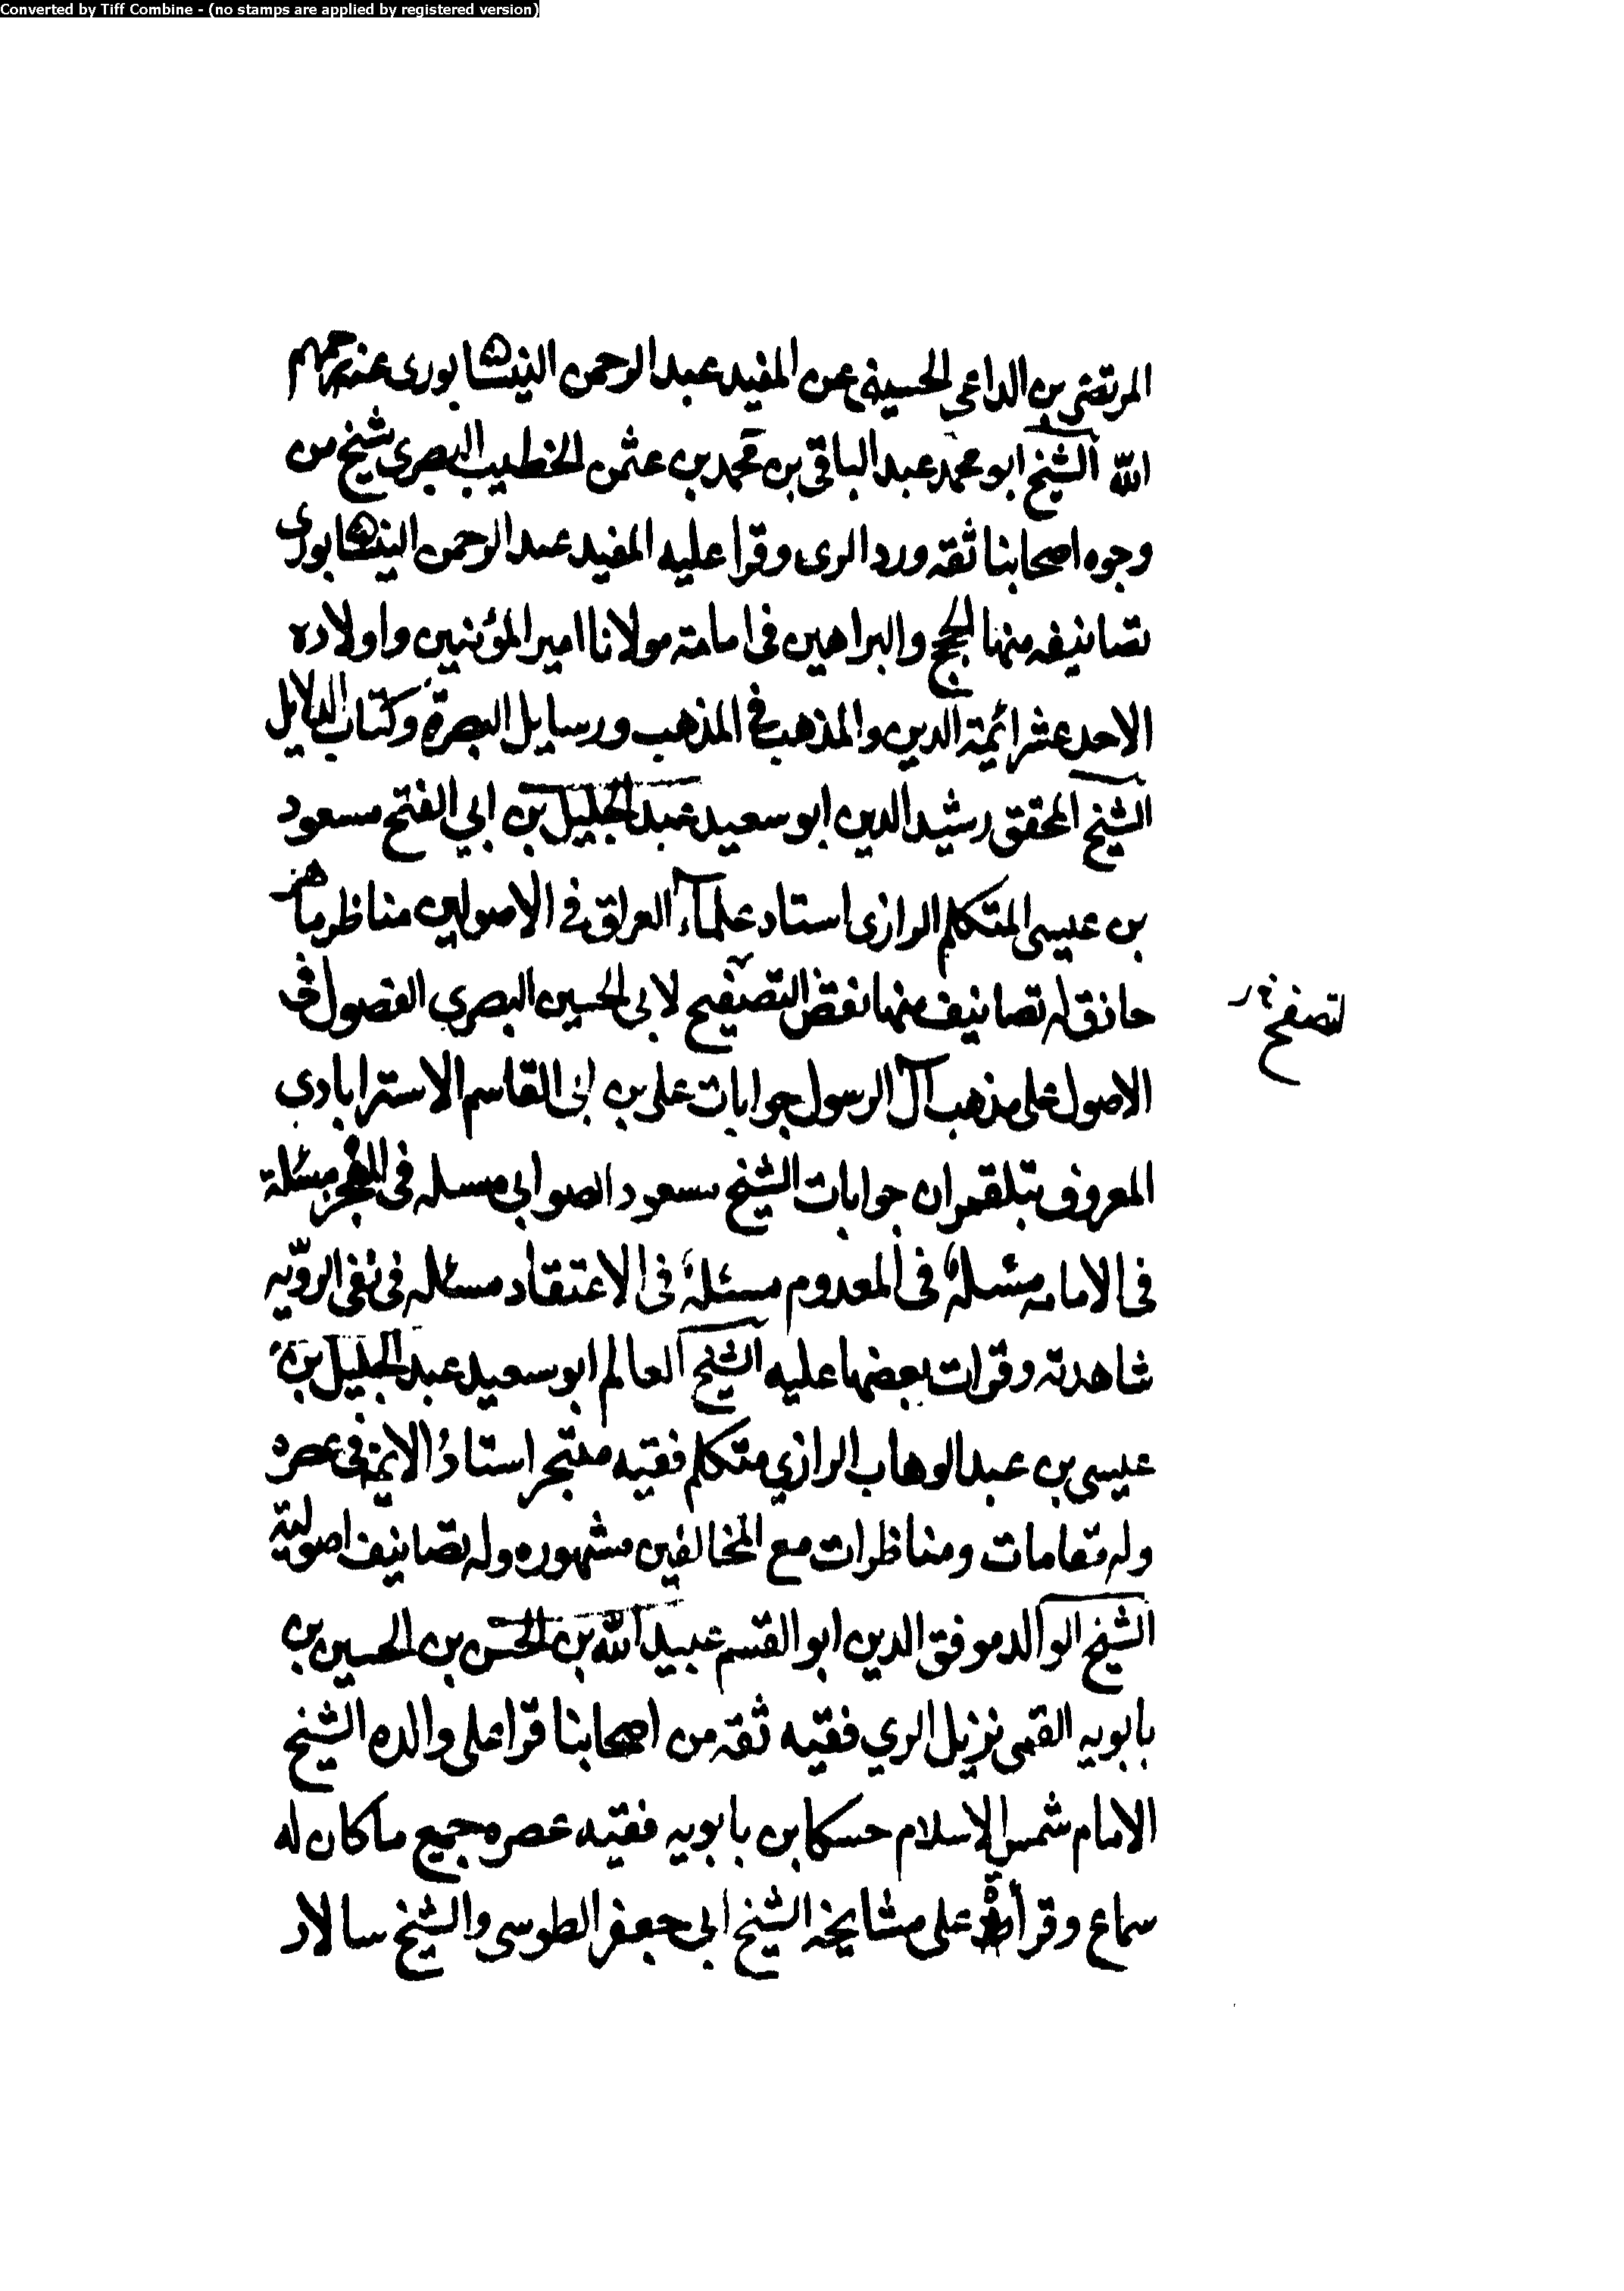 Converted by Tiff Combine - (no stamps are applied by registered version)
المرتضى بن الداعى الحسينى عن المفيد عبد الرحمن النيشابورى عنه رحمهم
الله الشيخ ابو محمد عبد الباقى بن محمد بن عثمن الخطيب البصرى شيخ من
وجوه اصحابنا ثقه ورد الرى وقرا عليه المفيد عبد الرحمن النيشابورى
تصانيفه منها الحجج والبراهين فى امامة مولانا امير المؤمنين واولاده
الاحد عشر ائمة الدين والمذهب فى المذهب ورسايل البصرة وكتاب الدلايل
الشيخ المحقق رشيد الدين ابو سعيد عبد الجليل بن ابي الفتح مسعود
بن عيسى المتكلم الرازى استاد علماء العراق في الاصولين مناظر ماهر
حاذق له تصانيف منها نقض التصفيح لابى الحسين البصري الفصول فى
لتصفح
الاصول على مذهب آل الرسول جوابات على بن ابى القاسم الاسترابادى
المعروف ببلقمران جوابات الشيخ مسعود الصوابى مسله فى المعجز مسئلة
فى الامامه مسئلة فى المعدوم مسئلة فى الاعتقاد مسئله فى نفى الرويّه
شاهدته وقرات بعضها عليه الشيخ العالم ابو سعيد عبد الجليل بن
عيسى بن عبد الوهاب الرازي متكلم فقيه متبحر استاد الائمة فى عصره
وله مقامات ومناظرات مع المخالفين مشهوره وله تصانيف اصولية
الشيخ الوالد موفق الدين ابو القسم عبيد الله بن الحسن بن الحسين بن
بابويه القمى نزيل الري فقيه ثقة من اصحابنا قرا على والده الشيخ
الامام شمس الاسلام حسكا بن بابويه فقيه عصره جميع ما كان له
سماع وقراة على مشايخه الشيخ ابى جعفر الطوسى والشيخ سالار